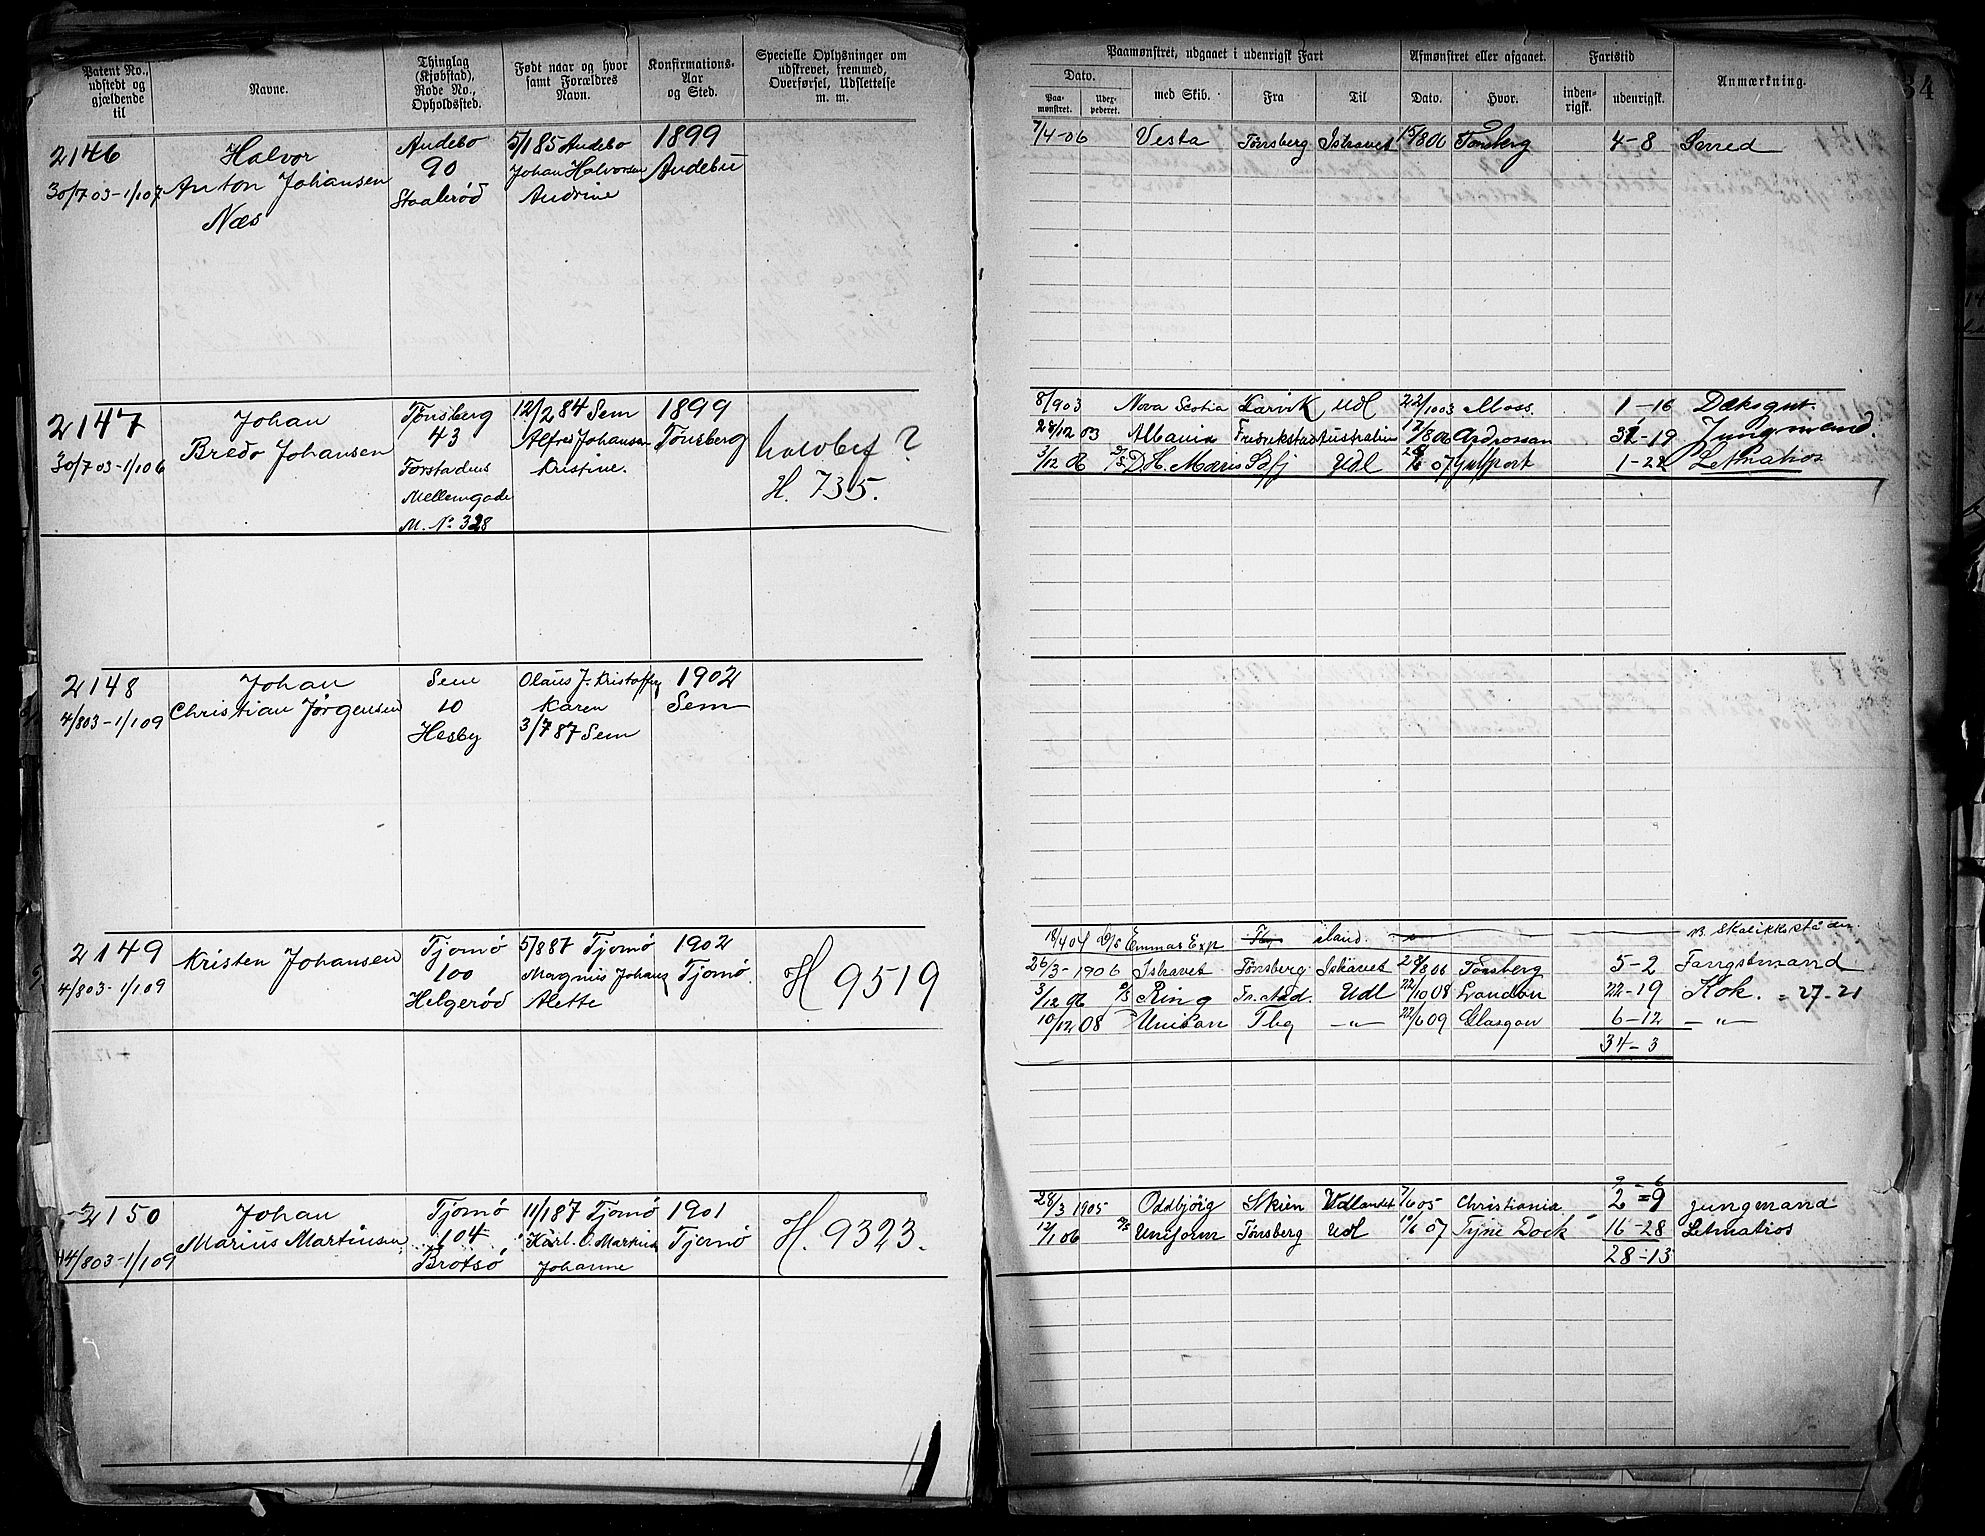 Patent No., udstedt og gjældende til
Navne.
Thinglag (Kjøbstad), Rode No., Opholdssted.
Født naar og hvor samt Forældres Navn.
Konfirmations- Aar og Sted.
Specielle Oplysninger om udskrevet, fremmed, Overførsel, Udslettelse m. m.
Paamønstret, udgaaet i udenrigsk Fart
Afmønstret eller afgaaet.
Fartstid
Anmærkning.
34
Dato.
Paa- mønstret.
Udex- pederet.
med Skib.
Fra
Til
Dato.
Hvor.
inden- rigsk.
udenrigsk.
2146
30/7 03-1/1 07
Halvor
Anton Johansen
Næs
Andebo
90
Staalerød
5/1 85 Andebo
Johan Halvorsen
Andrine
1899
Andebu
7/4-06 Vesta Tønsberg Ishavet 15/8 06 Tønsberg 4-8 Smed
2147
30/7 03-1/1 06
Johan
Bredo Johansen
Tønsberg
43
Forstadens
Mellemgade
M. No 328
12/2 84 Sem
Alfred Johansen
Kristine.
1899
Tønsberg
H. 735.
8/9 03 Nova Scotia Larvik Udl 22/10 03 Moss. 1-16 Dæksgut.
28/12 03 Albania Fredrikstad Australia 12/8 06 Ardrossan 31-19 Jungmand.
3/12 06 Udl 07 Gulfport 1-22 Letmatros
2148
4/8 03-1/1 09
Johan
Christian Jørgensen
Sem
10
Hesby
Olaus J. Kristoffers
Karen
3/7 87 Sem
1902
Sem
2149
4/8 03-1/1 09
Kristen Johansen
Tjømø
100
Helgerød
5/8 87 Tjømø
Magnus Johans
Alette
1902
Tjømø.
H 9519
18/4 04 Emmas Exp Tbg island.
26/3-1906 Ishavet Tønsberg Ishavet 28/8 06 Tønsberg 5-2 Fangstmand
3/12 06 Ring Fr.stad. Udl 22/10 08 London 22-19 Kok. = 27-21
10/12 08 Unison Tbg -"- 22/6 09 Glasgow 6-12 -"-
34-3
2150
4/8 03-1/1 09
Johan
Marius Martinsen
Tjømø
104
Brøtsø
11/1 87 Tjømø
Karl O. Markus
Johanne
1901
Tjømø
H. 9323.
9-6
28/3 1905 Oddbjørg Skien Udlandet 7/6 05 Christiania 2=9 Jungmand
12/1 06 Uniform Tønsberg Udl 10/6 07 Tyne Dock 16-28 Letmatros
28-13